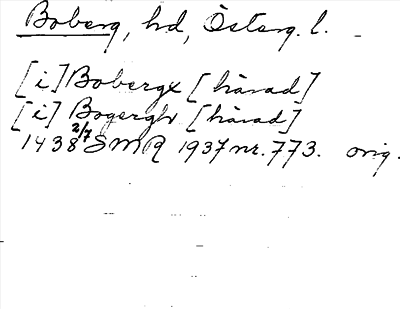 Boberg, hd, Östерg. l.
[i] Bobergx [härad]
[i] Bogerghr [härad]
1438 2/7 SMR 1937 nr. 773. orig.